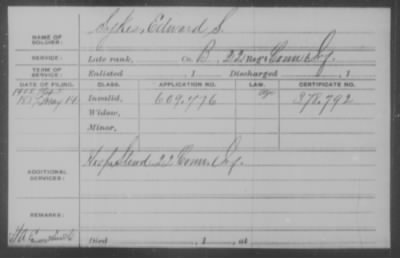 NAME OF SOLDIER: Sykes, Edward S.
SERVICE: Late rank, Co. B, 22 Reg't Conn. Inf.
TERM OF SERVICE: Enlisted , 1 Discharged , 1
DATE OF FILING. CLASS. APPLICATION NO. LAW. CERTIFICATE NO.
May Invalid, 609.476 378.792
Widow,
Minor,
ADDITIONAL SERVICES: Hosp. Stew'd 22 Conn. Inf.
REMARKS:
Died , 1 , at